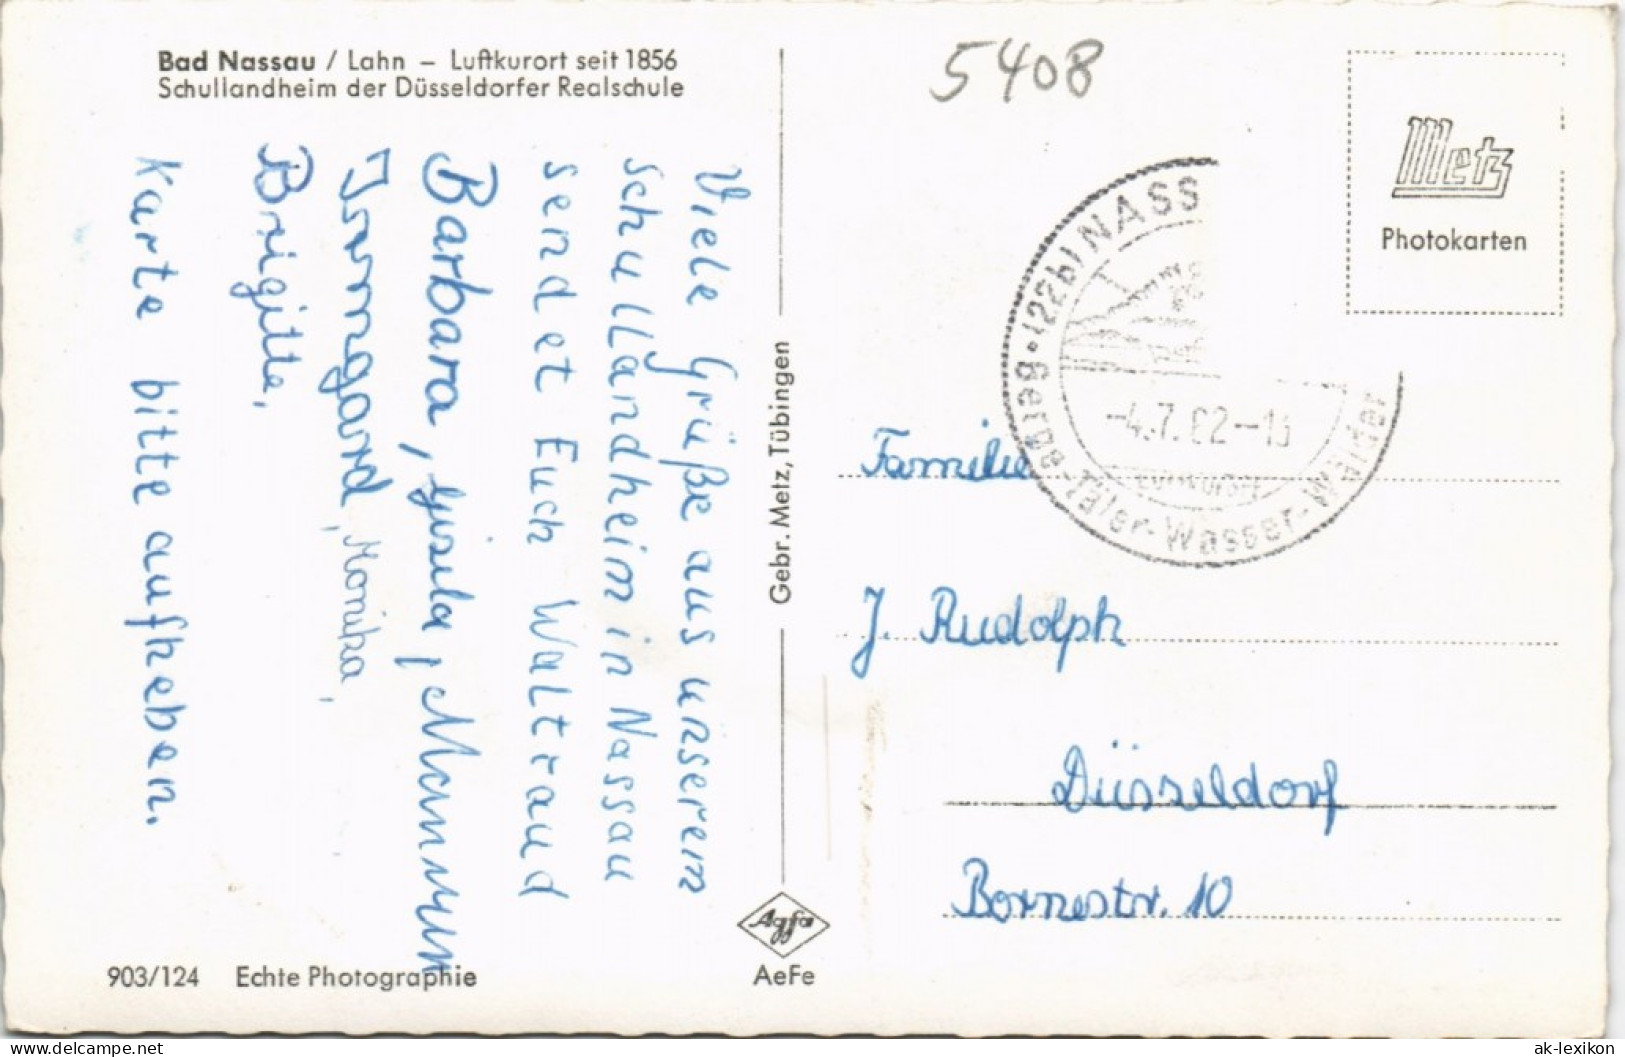 Bad Nassau / Lahn – Luftkurort seit 1856
Schullandheim der Düsseldorfer Realschule
Viele Grüße aus unserem
Schullandheim in Nassau
sendet Euch Waltraud
Barbara, Gisela,
Irmgard, Monika,
Brigitte,
Karte bitte aufheben.
903/124 Echte Photographie
Gebr. Metz, Tübingen
Agfa
AeFe
5408
Metz
Photokarten
(22b) NASS
-4.7.62-13
Luftkurort
Berge-Täler-Wasser-Wälder
Familie
J. Rudolph
Düsseldorf
Bornestr. 10
www.delcampe.net
ak-lexikon